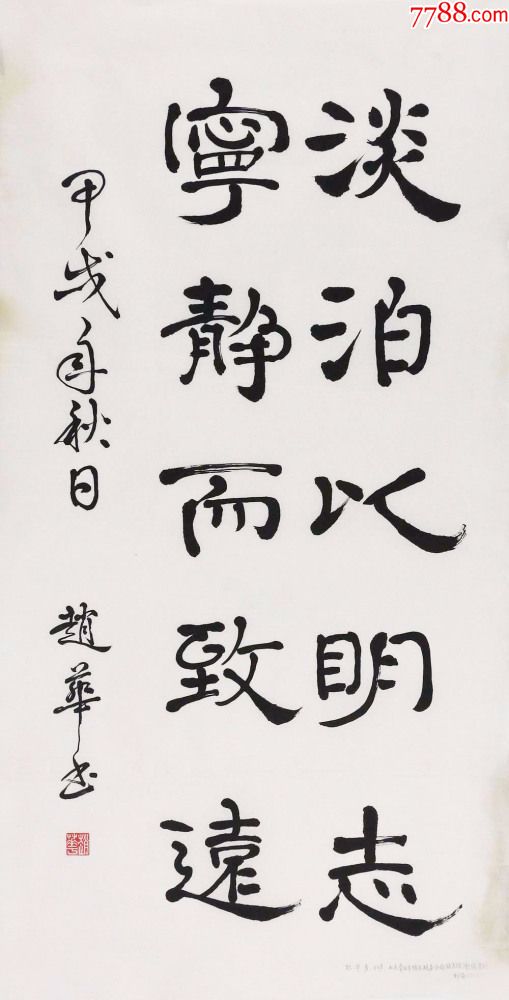 7788.com
淡泊以明志
寧静而致遠
甲戌年秋日 趙華书
趙華